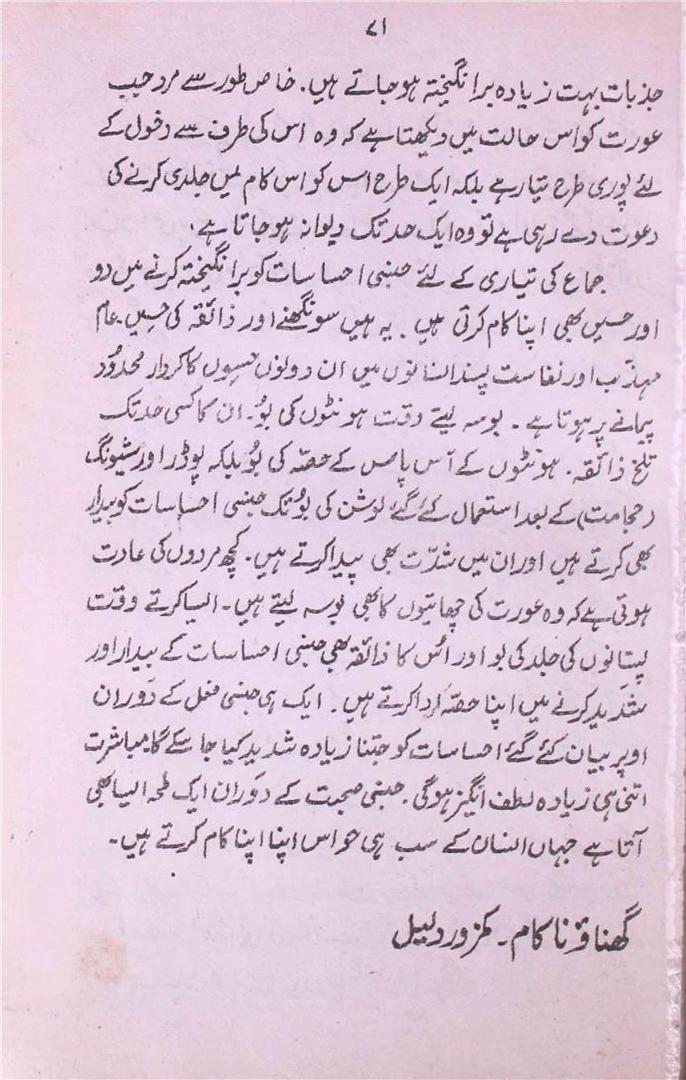 ۷۱
جذبات بہت زیادہ برانگیختہ ہو جاتے ہیں. خاص طور سے مرد جب
عورت کو اس حالت میں دیکھتا ہے کہ وہ اس کی طرف سے دخول کے
لئے پوری طرح تیار ہے بلکہ ایک طرح اس کو اس کام میں جلدی کرنے کی
دعوت دے رہی ہے تو وہ ایک حد تک دیوانہ ہو جاتا ہے.
جماع کی تیاری کے لئے جنسی احساسات کو برانگیختہ کرنے میں دو
اور حسیں بھی اپنا کام کرتی ہیں. یہ ہیں سونگھنے اور ذائقہ کی حسیں. عام
مہذب اور نفاست پسند انسانوں میں ان دونوں حسوں کا کردار محدُود
پیمانے پر ہوتا ہے۔ بوسہ لیتے وقت ہونٹوں کی بُو۔ ان کا کسی حد تک
تلخ ذائقہ. ہونٹوں کے آس پاس کے حصّہ کی بُو بلکہ پوڈر اور شیونگ
(حجامت) کے بعد استعمال کئے گئے لوشن کی بُو تک جنسی احساسات کو بیدار
بھی کرتے ہیں اور ان میں شدّت بھی پیدا کرتے ہیں. کچھ مردوں کی عادت
ہوتی ہے کہ وہ عورت کی چھاتیوں کا بھی بوسہ لیتے ہیں۔ ایسا کرتے وقت
پستانوں کی جلد کی بو اور اُس کا ذائقہ بھی جنسی احساسات کے بیدار اور
شدید کرنے میں اپنا حصّہ ادا کرتے ہیں. ایک ہی جنسی فعل کے دَوران
اوپر بیان کئے گئے احساسات کو جتنا زیادہ شدید کیا جا سکے گا. مباشرت
اتنی ہی زیادہ لطف انگیز ہوگی. جنسی صحبت کے دوَران ایک لمحہ ایسا بھی
آتا ہے جہاں انسان کے سب ہی حواس اپنا اپنا کام کرتے ہیں۔
گھناؤنا کام۔ کمزور دلیل